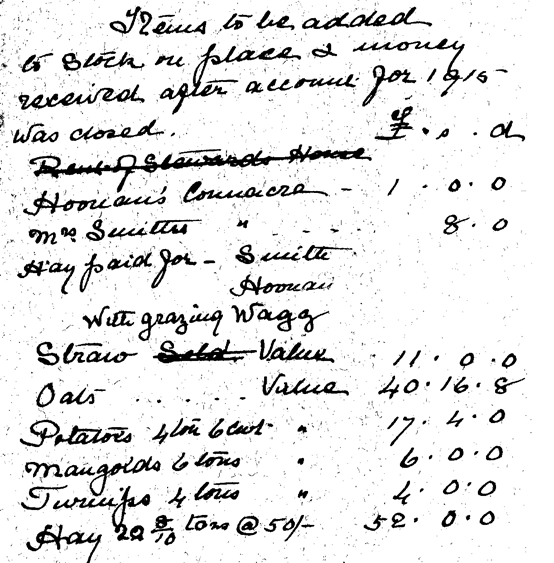 Items to be added
to Stock on place & money
received after account for 1915
was closed.   £ . s . d
Rent of Stewards House
Hoonan's Connacre - 1 . 0 . 0
Mrs Smiths " . . . . 8 . 0
Hay paid for - Smith
Hoonan
With grazing Wagg
Straw Sold Value 11 . 0 . 0
Oats . . . . . . Value 40 . 16 . 8
Potatoes 4 ton 6 cwt " 17 . 4 . 0
Mangolds 6 tons " 6 . 0 . 0
Turnips 4 tons " 4 . 0 . 0
Hay 20 8/10 tons @ 50/- 52 . 0 . 0